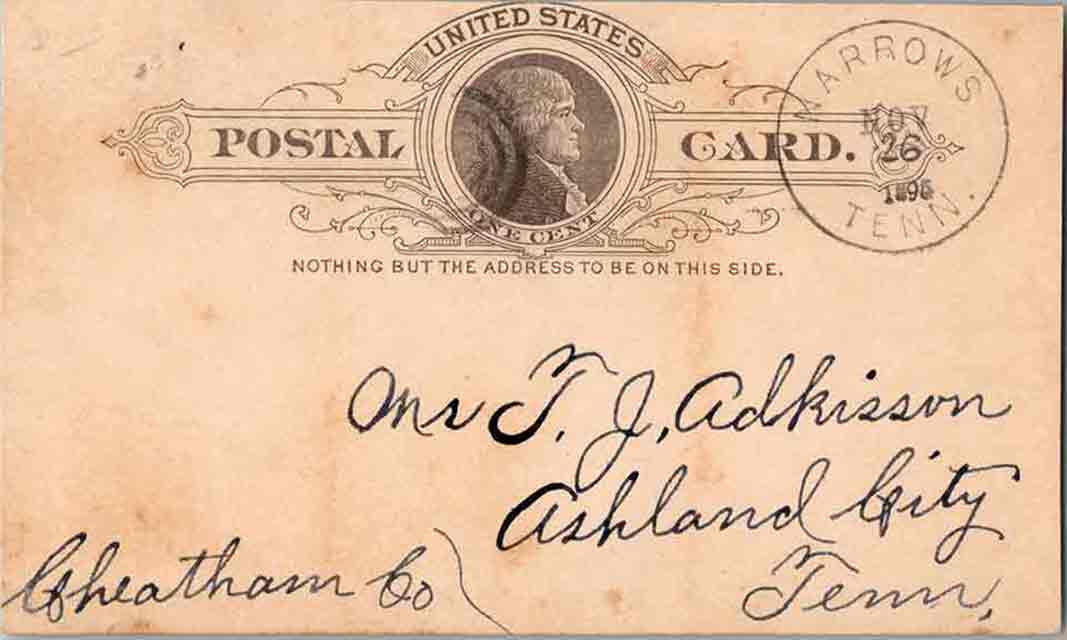 UNITED STATES
POSTAL CARD.
ONE CENT
NOTHING BUT THE ADDRESS TO BE ON THIS SIDE.
WARROWS
NOV
26
TENN.
Mr T. J. Adkisson
Ashland City
Tenn.
Cheatham Co